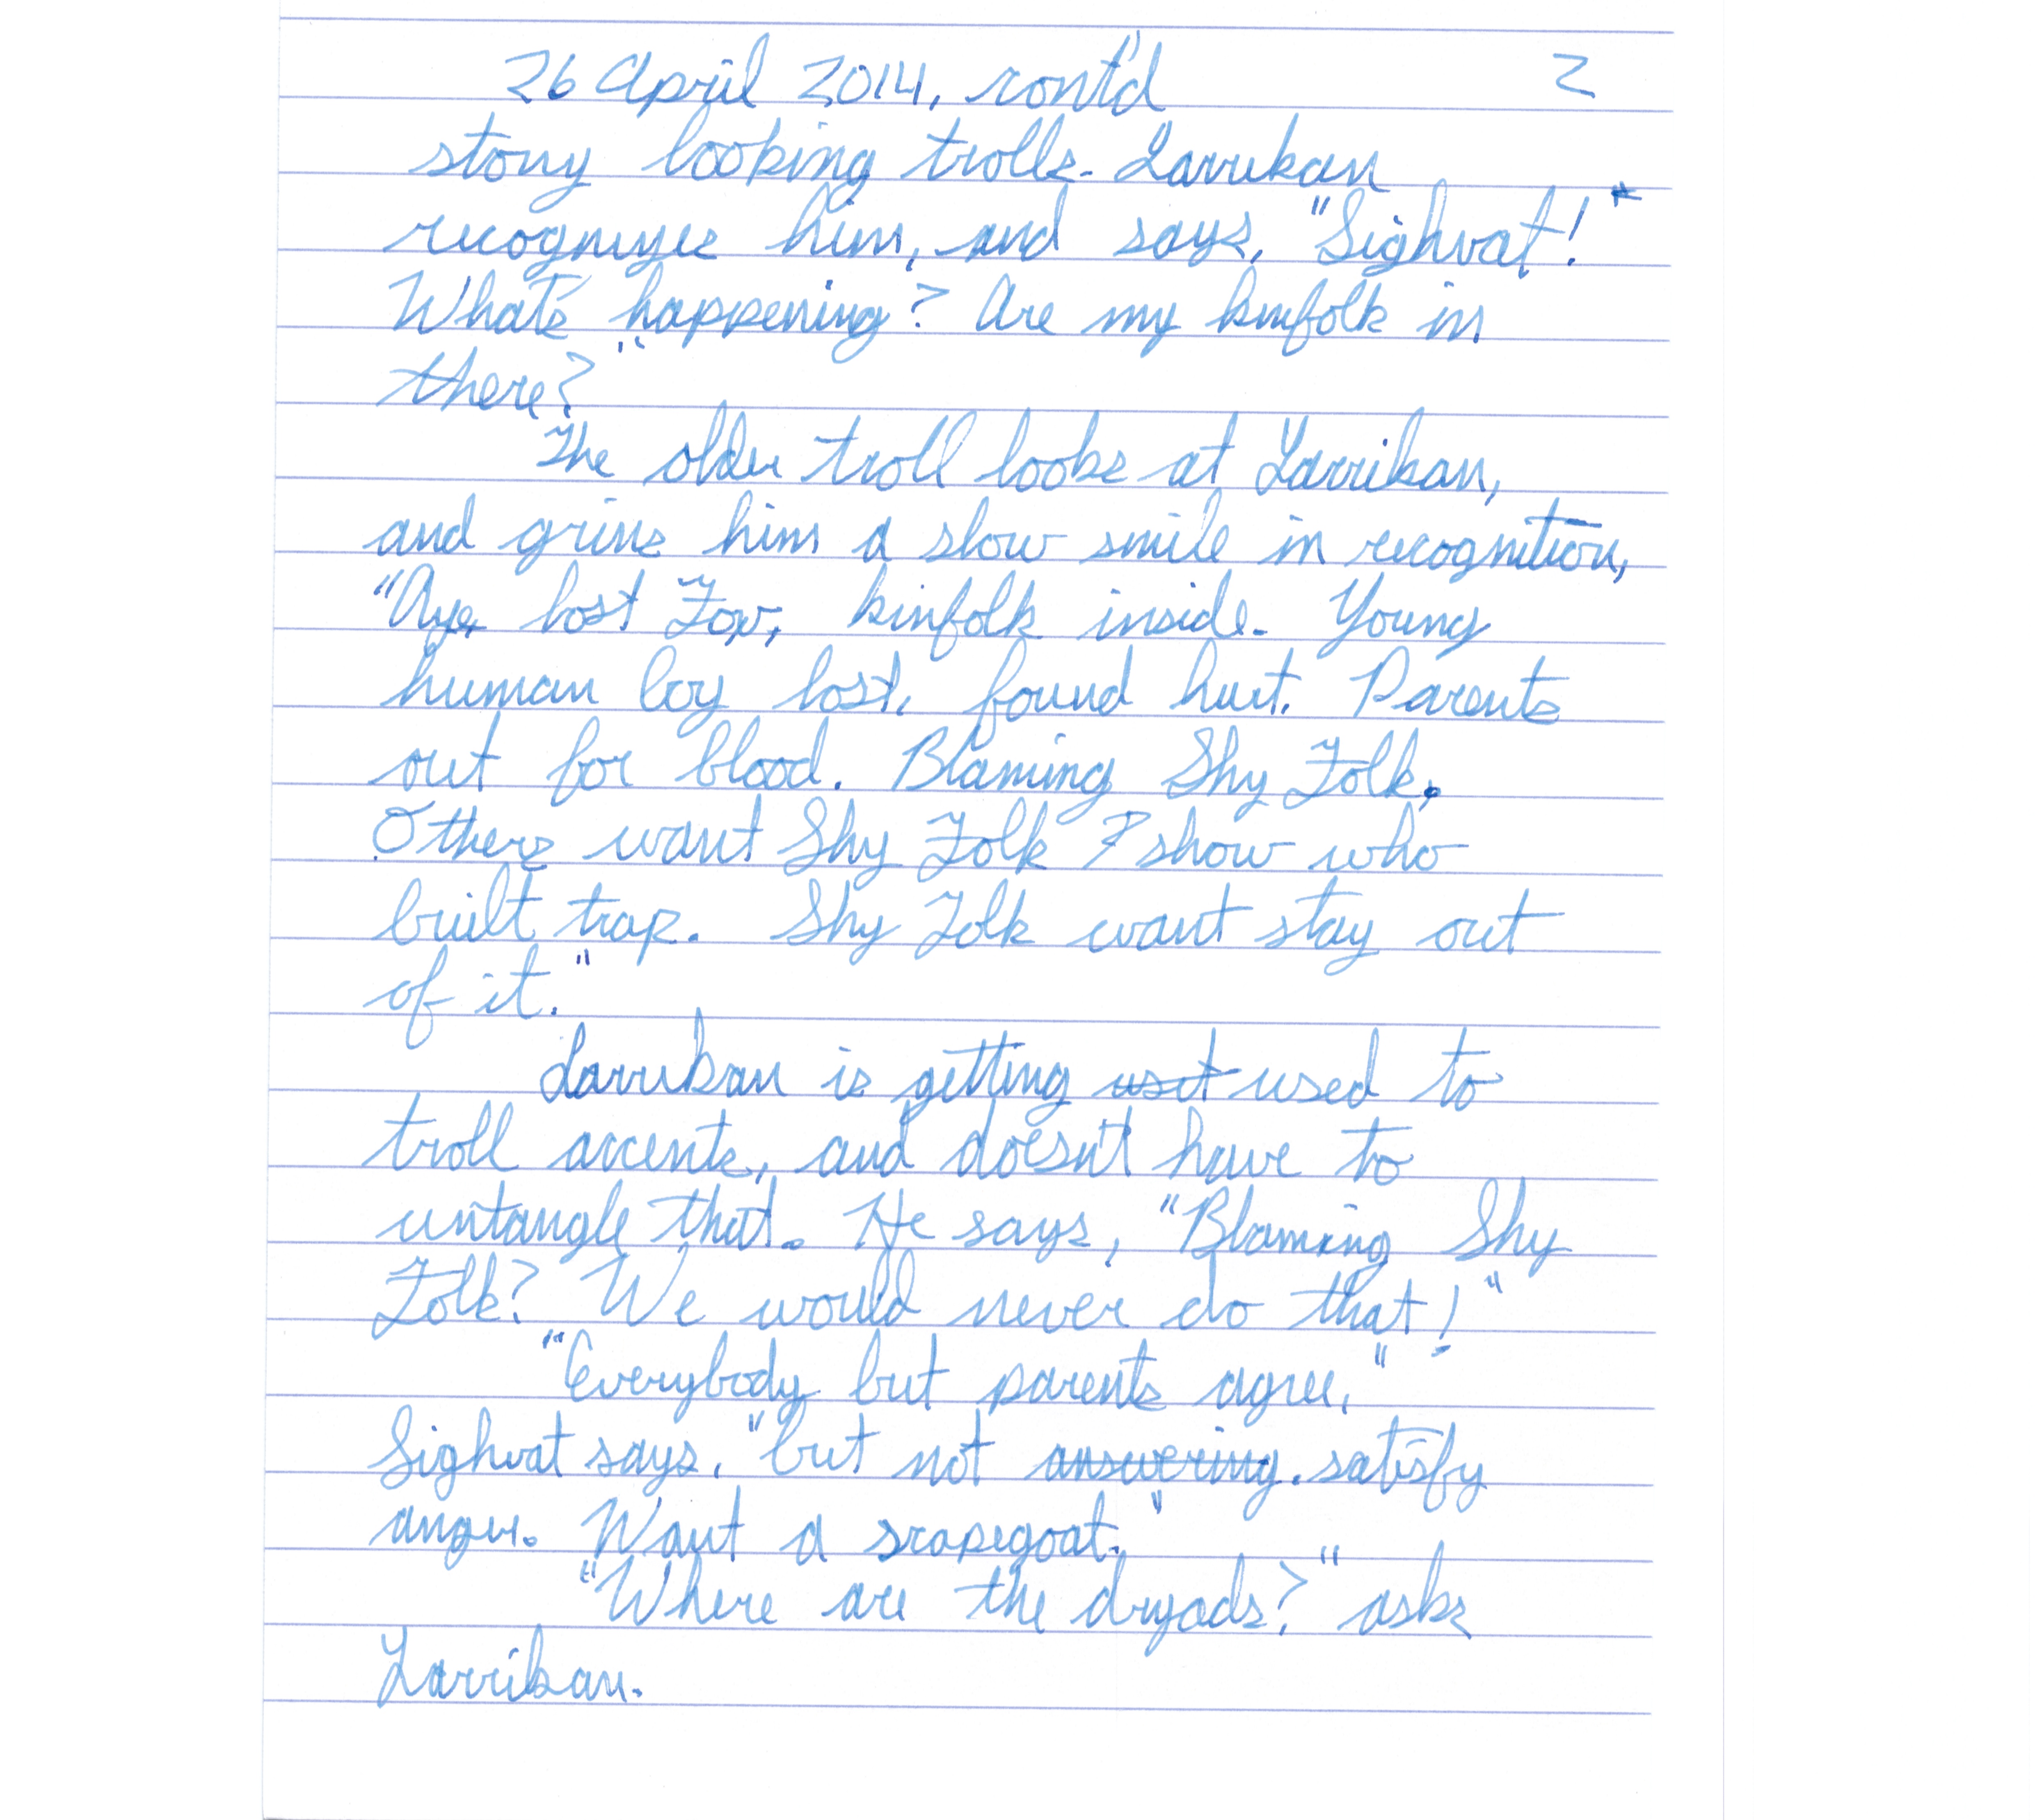 26 April 2014, cont'd 2
stony looking trolls. Larrikan
recognizes him, and says, "Sighvat! *
What's happening? Are my kinfolk in
there?"
The older troll looks at Larrikan,
and grins him a slow smile in recognition,
"Aye, lost Fox, kinfolk inside. Young
human boy lost, found hurt. Parents
out for blood. Blaming Shy Folk.
Others want Shy Folk show who
built trap. Shy Folk want stay out
of it."
Larrikan is getting uset used to
troll accents, and doesn't have to
untangle that. He says, "Blaming Shy
Folk? We would never do that!"
"Everybody but parents agree,"
Sighvat says, "but not answering. satisfy
anger. Want a scapegoat."
"Where are the dryads?" asks
Larrikan.